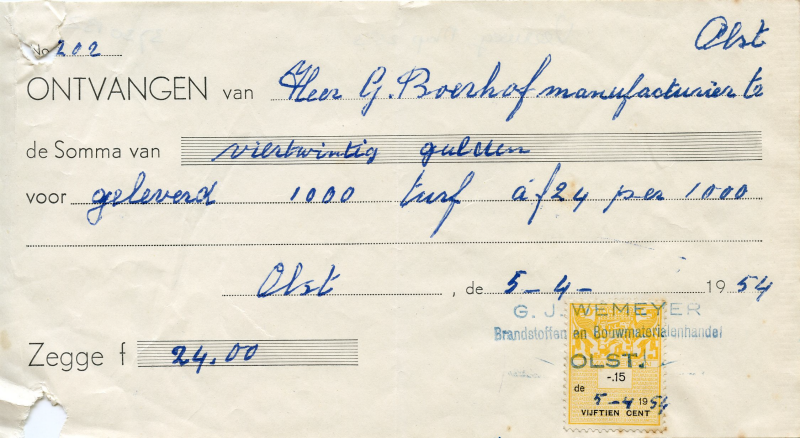 No 202
Olst
ONTVANGEN van Heer G. Boerhof manufacturier te
de Somma van viertwintig gulden
voor geleverd 1000 turf á f 24 per 1000
Olst, de 5-4- 1954
G. J. WEMEYER
Brandstoffen en Bouwmaterialenhandel
OLST.
Zegge f 24.00
-.15
de 5-4 1954
VIJFTIEN CENT